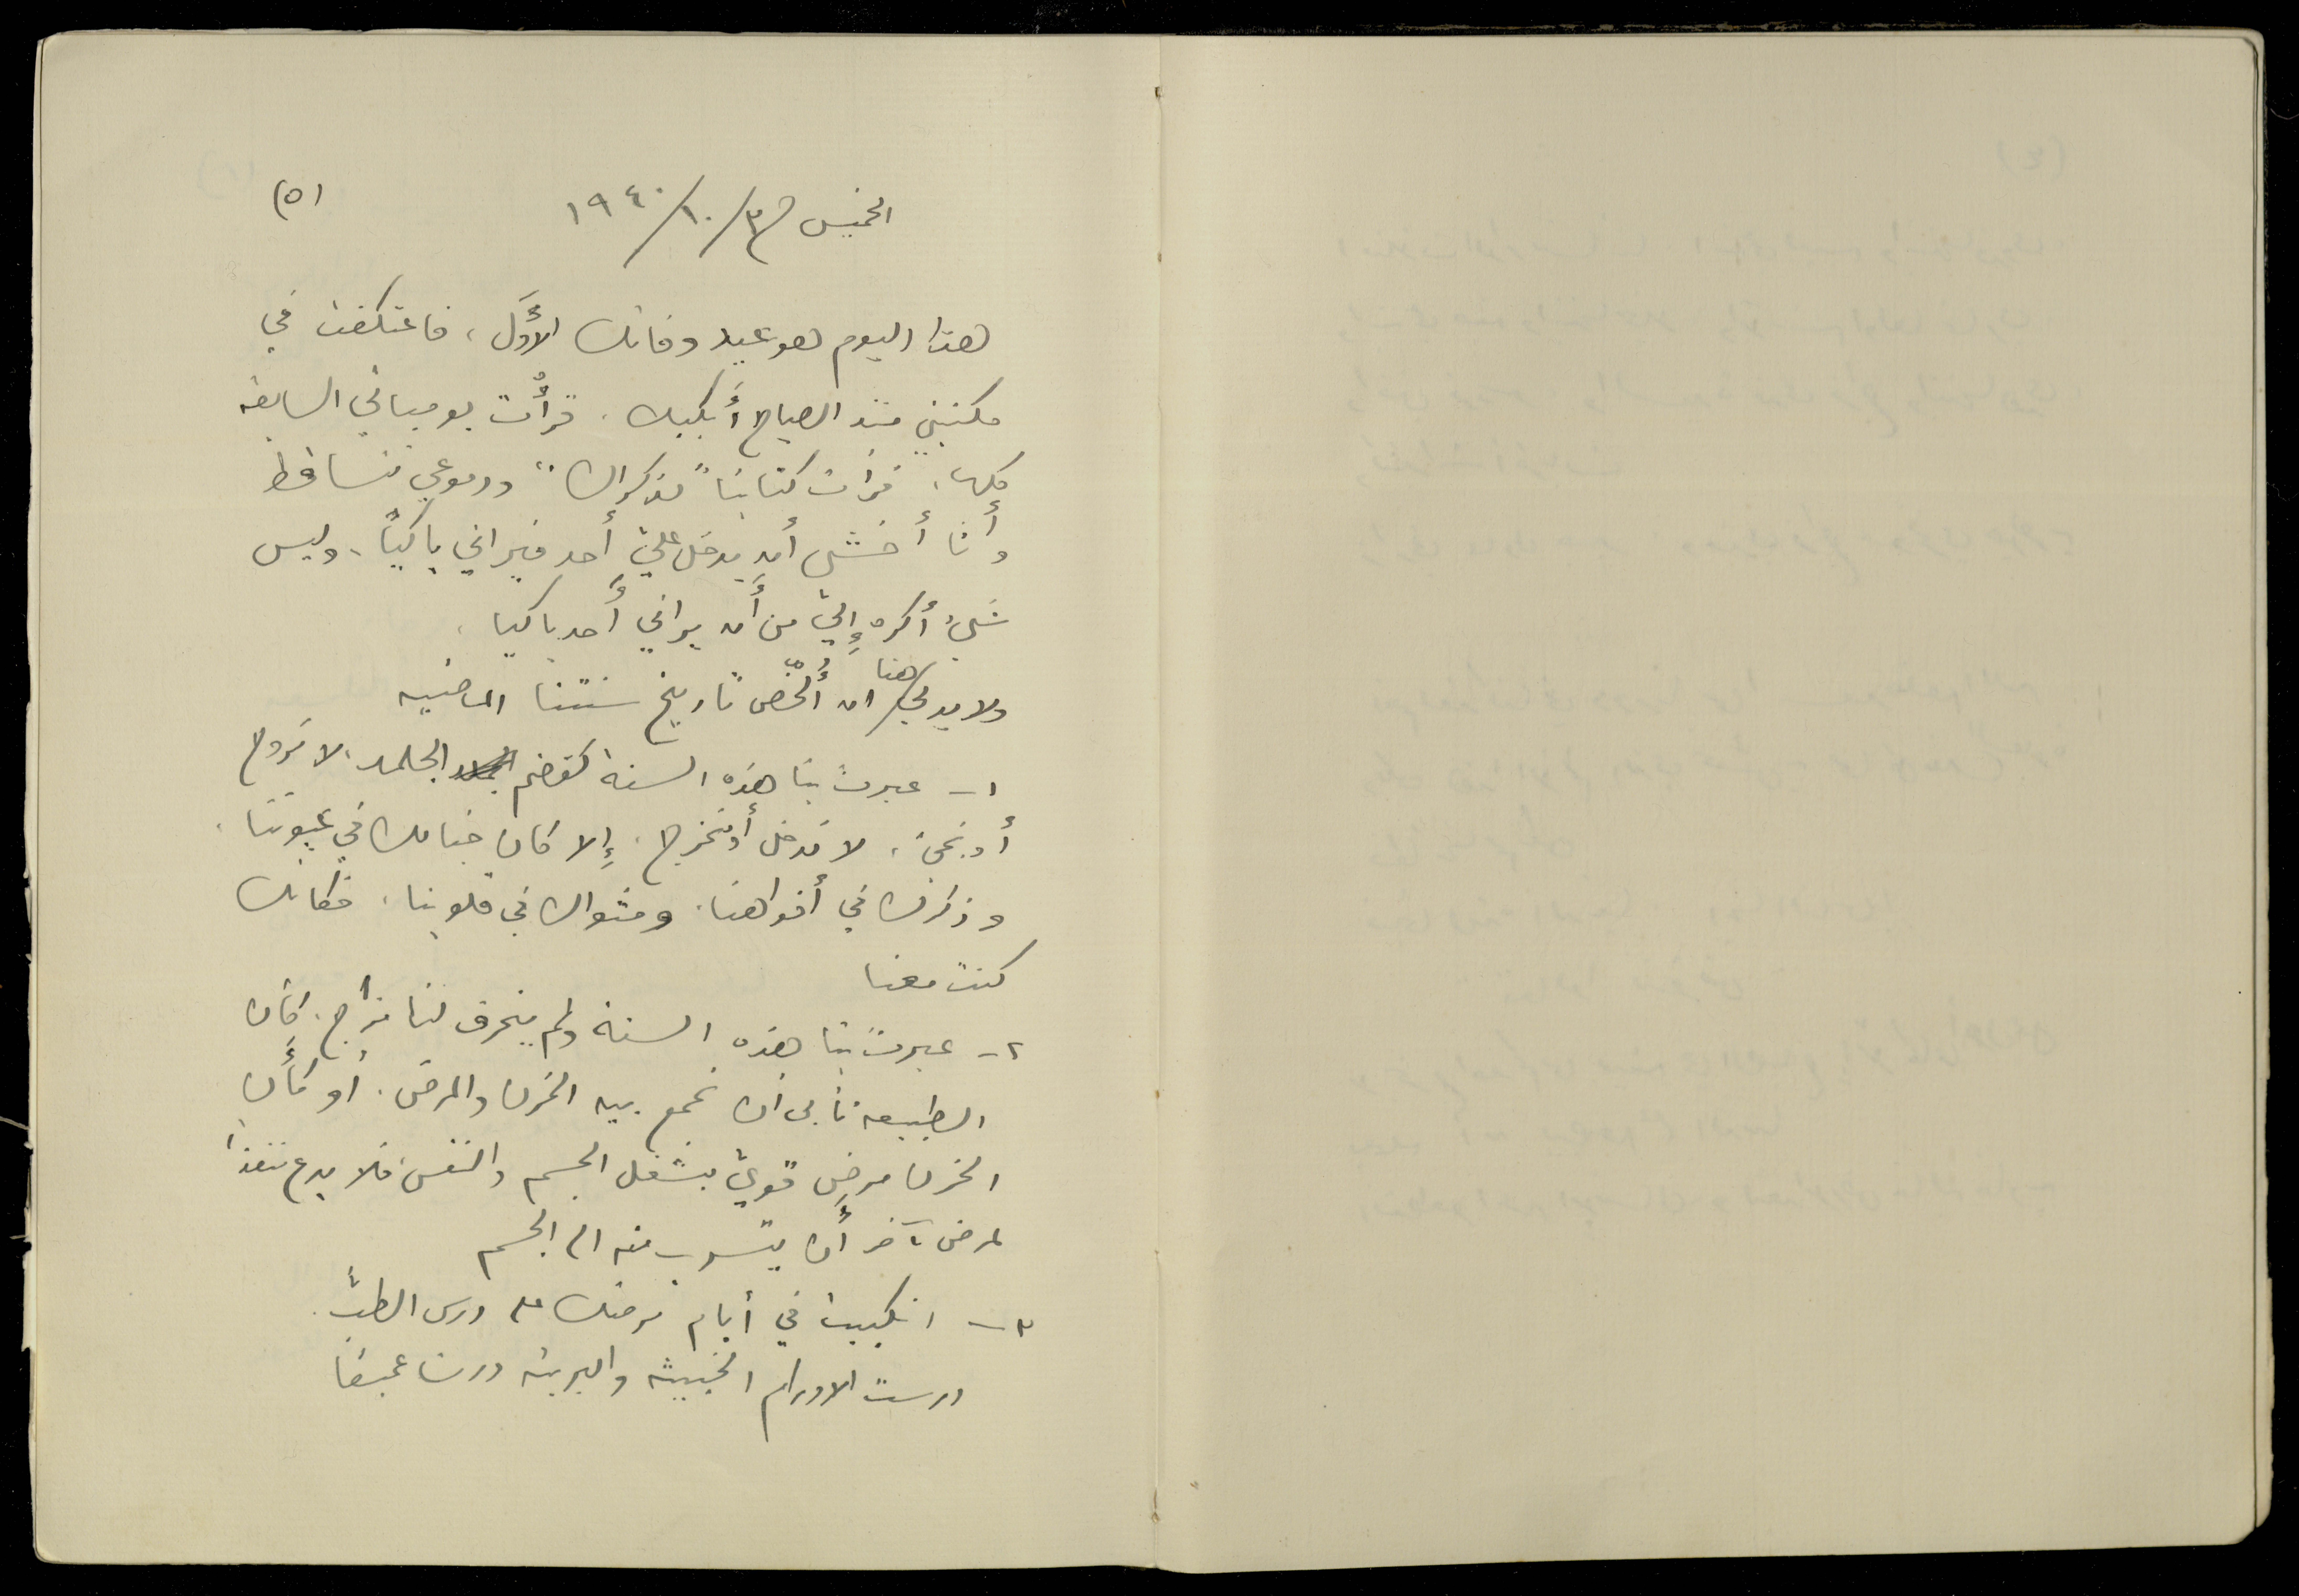 (٥)
الخميس في ٣/١٠/١٩٤٠
هذا اليوم هو عيد وفاتك الأوَّل، فاعتكفت في
مكتبتي منذ الصباح أبكيك. قرأتُ يومياتي السابقة
كلها، قرأت كتابنا "ذكراك" ودموعي تتساقط
وأنا أخشى أن يدخل عليّ أحد فيراني باكيًا، وليس
شيء أكره إليّ من أن يراني أحد باكيا.
ولا بد لي هنا ان أُلخّص تاريخ سنتنا الماضيه
١ – عبرت بنا هذه السنة كقضم الجلمد، لا نروح
أو نجيء، لا ندخل أو نخرج، إلا كان خيالك في عيوننا،
وذكرك في أفواهنا، ومثواك في قلوبنا، فكأنك
كنت معنا
٢ – عبرتْ بنا هذه السنة ولم ينحرف لنا مزاج، كأن
الطبيعة تأبى ان تجمع بين الحزن والمرض. أو كأن
الحزن مرض قويّ يشغل الجسم والنفس فلا يدع منفذا
لمرض آخر أن يتسرب منه الى الجسم
٣ – انكببت في أيام مرضك على درس الطبّ.
درست الاورام الخبيثة والبريئة درسا عميقا